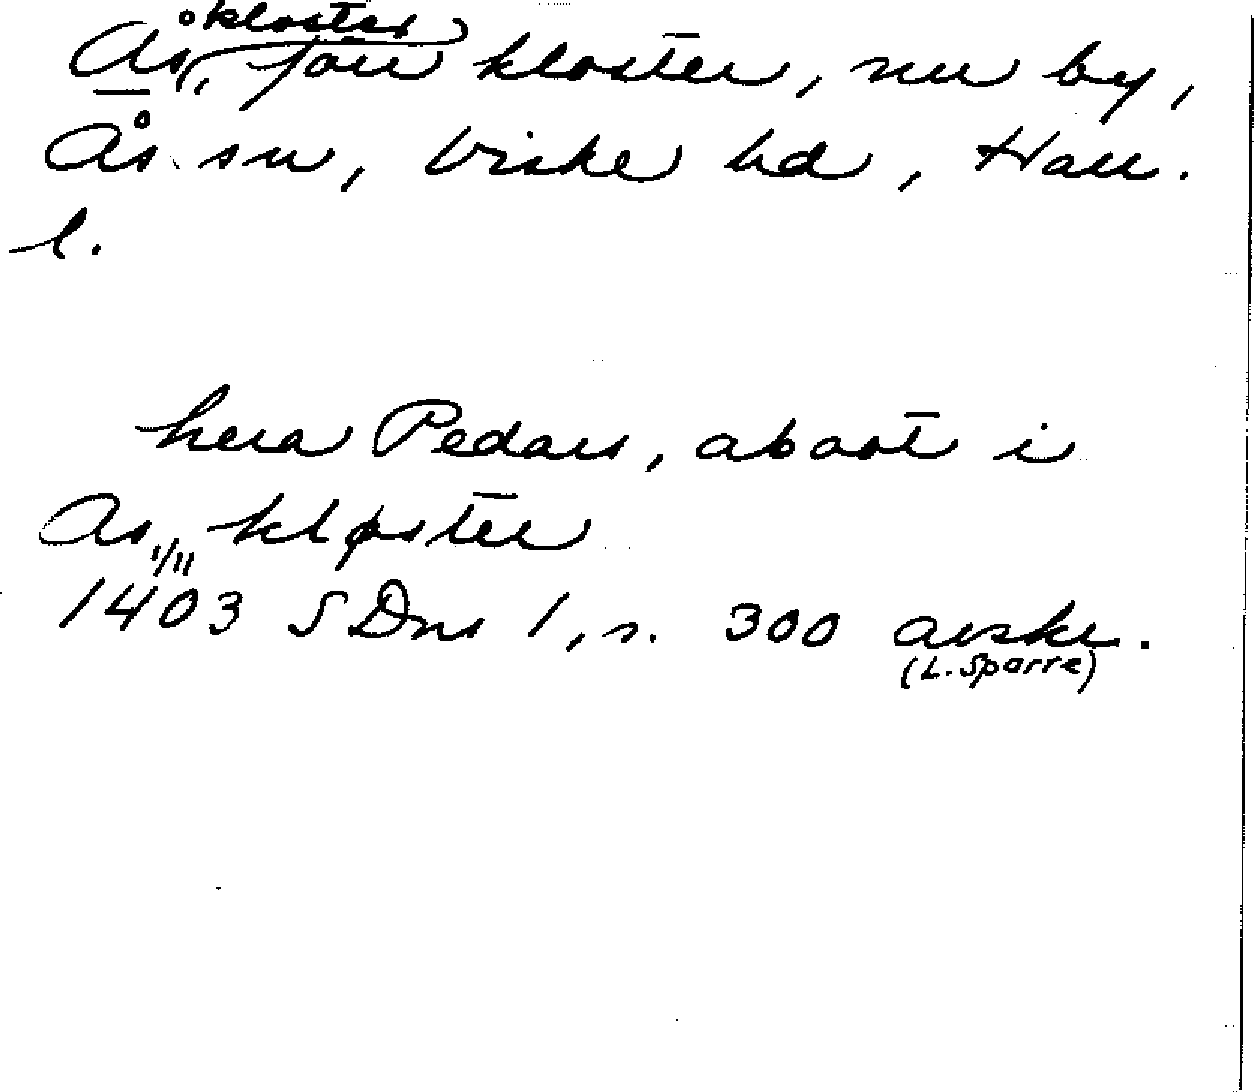 Ås(kloster), förr kloster, nu by,
Ås sn, Viske hd, Hall.
l.
hera Pedars, aboot i
As kloster
1/11
1403 SDns 1, s. 300 avskr.
(L. Sparre)